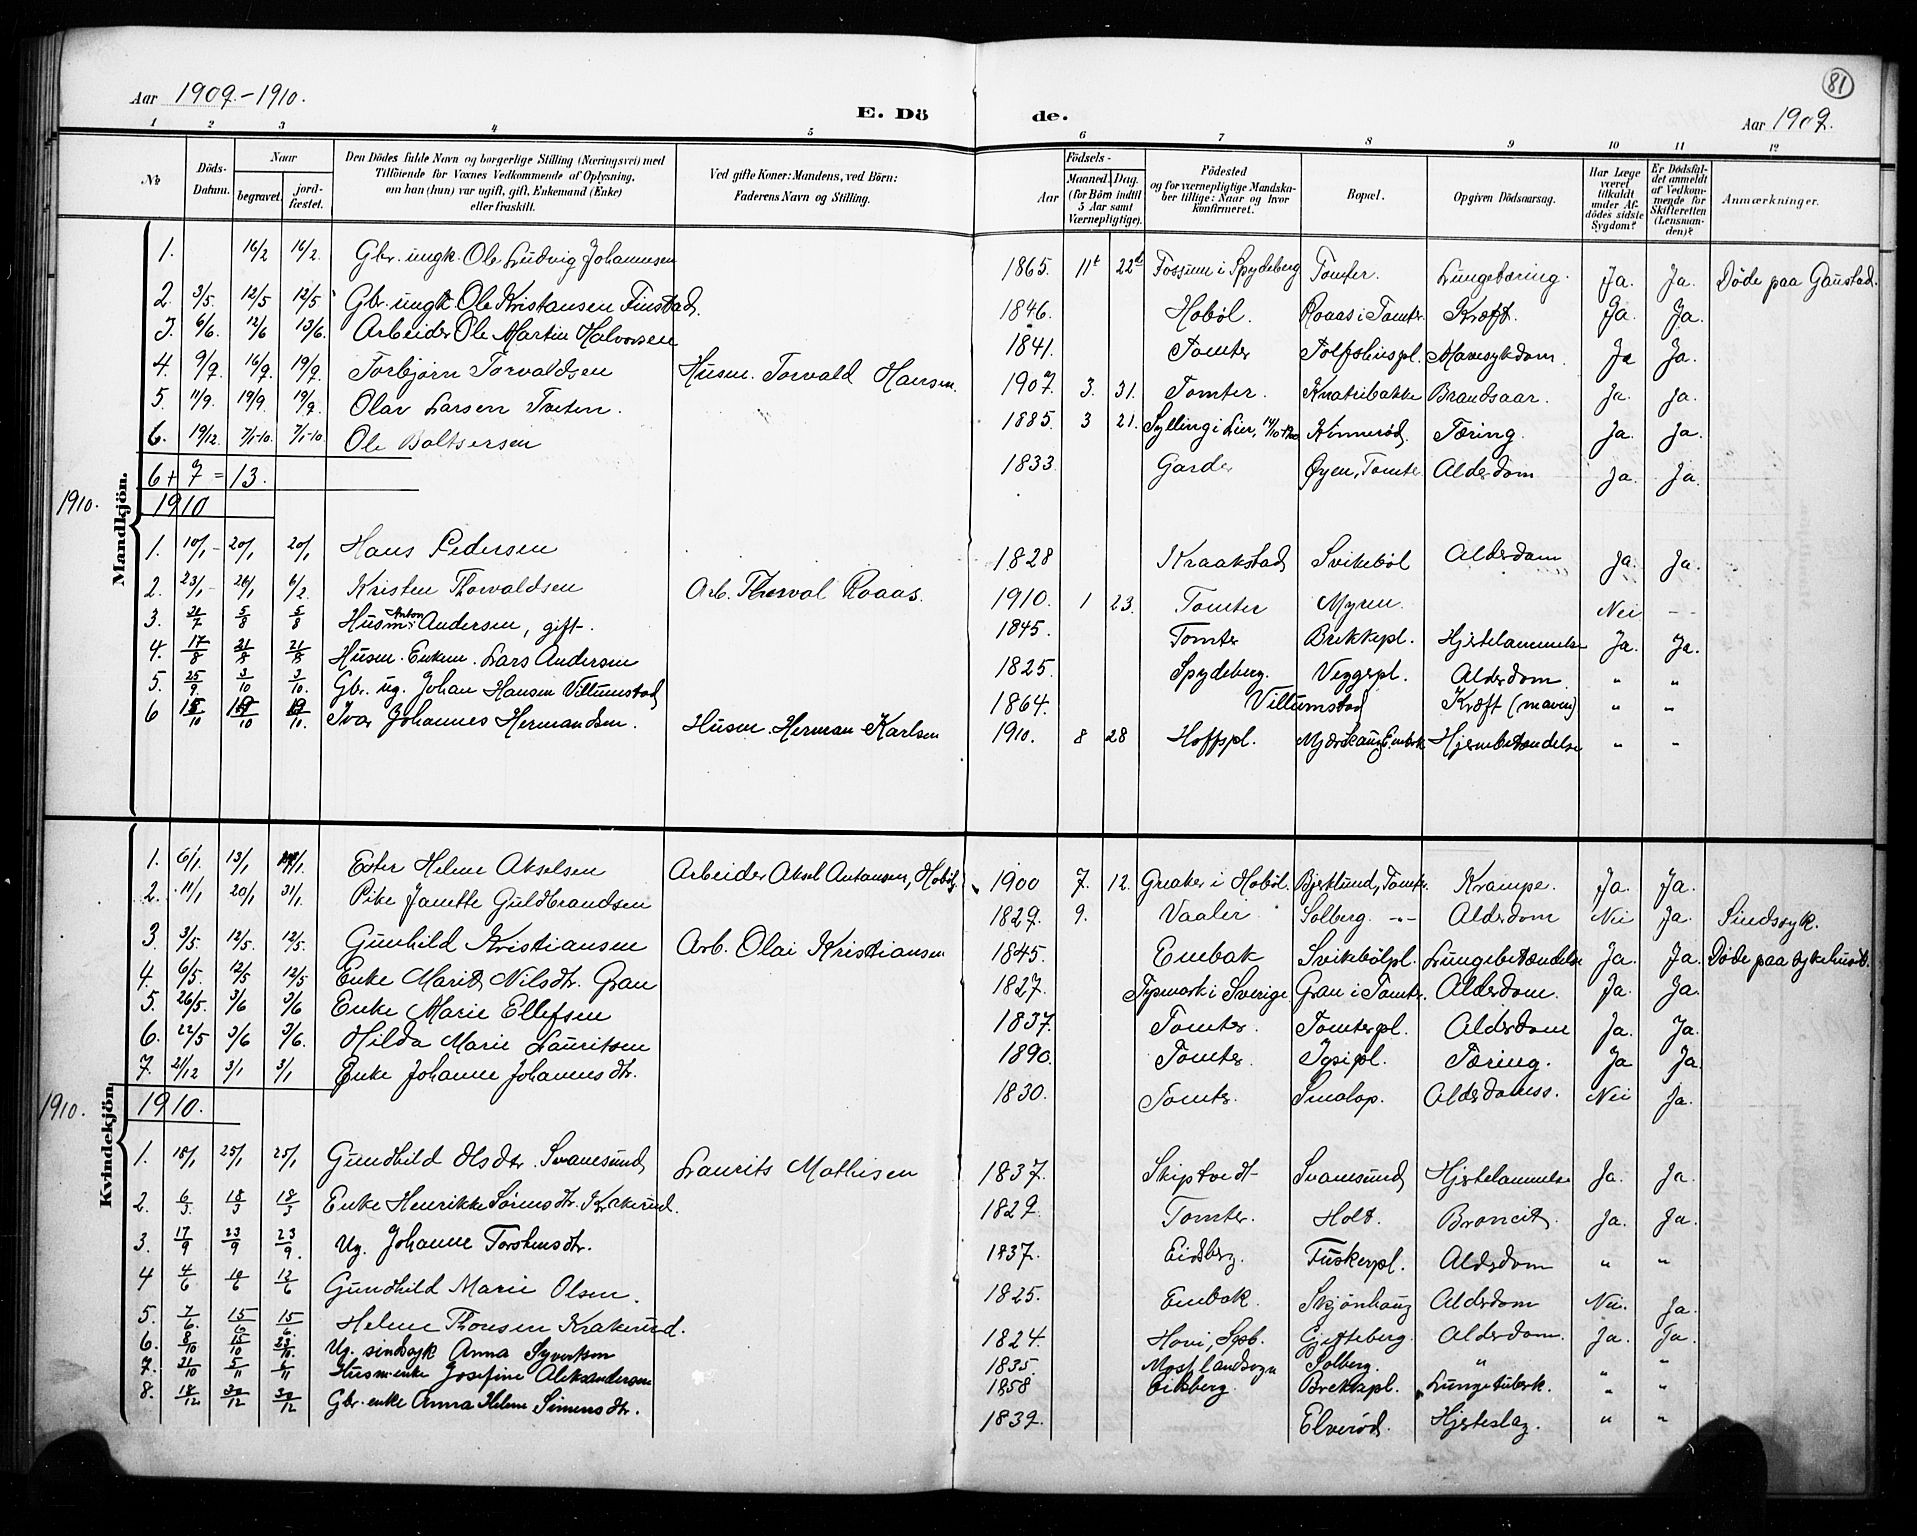 Aar 1909.-1910.
E. Dö de.
81
Aar 1909.
1 2 3 4 5 6 7 8 9 10 11 12
No
Döds-Datum.
Naar
begravet.
jord-fæstet.
Den Dödes fulde Navn og borgerlige Stilling (Næringsvei) med Tilföiende for Voxnes Vedkommende af Oplysning, om han (hun) var ugift, gift, Enkemand (Enke) eller fraskilt.
Ved gifte Koner: Mandens, ved Börn: Faderens Navn og Stilling.
Födsels-
Aar
Maaned. Dag.
(for Börn indtil 5 Aar samt Værnepligtige).
Födested og for værnepligtige Mandskaber tillige: Naar og hvor konfirmeret.
Bopæl.
Opgiven Dödsaarsag.
Har Læge været tilkaldt under Afdödes sidste Sygdom?
Er Dødsfaldet anmeldt af Vedkommende for Skifteretten (Lensmanden)?
Anmærkninger.
Mandkjön.
1. 16/2 16/2. Gbr. ungk. Ole Ludvig Johannesen 1865. 11t 22d Fossum i Spydeberg Tomter. Lungetæring. Ja. Ja. Døde paa Gaustad.
2. 3/5. 12/5 12/5 Gbr. ungk. Ole Kristansen Finstad. 1846. Hobøl. Roaas i Tomter Kræft. Ja. Ja.
3. 6/6. 12/6 13/6. Arbeider Ole Martin Halvorsen 1841. Tomter Tolfshuspl. Mavesykdom. Ja Ja.
4. 9/9. 16/9. 19/9. Torbjørn Torvaldsen Husm. Torvald Hansen. 1907. 3. 31. Tomter. Knatribakke Brandsaar. Ja. Ja.
5. 11/9. 19/9. 19/9. Olav Larsen Tveten. 1885. 3 21. Sylling i Lier, Kinnerød. Tæring. Ja. Ja.
6. 19/12. 7/1-10. 7/1-10. Ole Baltsersen 1833. Garder Øyen, Tomter Alderdom Ja. Ja.
6 + 7 = 13.
1910.
1910
1. 10/1 - 20/1 20/1 Hans Pedersen 1828 Kraakstad Svikebøl Alderdom Ja. Ja.
2. 23/1 - 26/1 6/2. Kristen Thorvaldsen Arb. Thorval Roaas. 1910. 1 23. Tomter Myren. Nei - -
3. 21/7 5/8 5/8 Husm. Anton Andersen, gift. 1845. Tomter Brekkepl. Hjertelammelse Ja. Ja.
4. 17/8 21/8 21/8 Husm. Enkem. Lars Andersen 1825. Spydeberg. Veggepl. Alderdom. " "
5. 25/9. 3/10 3/10. Gbr. ug. Johan Hansen Villumstad 1864. Villumstad Kræft (maven) " "
6 15/10 19/10 19/10. Ivar Johannes Hermandsen. Husm. Herman Karlsen 1910. 8 28 Hoffspl. Mjærskaug Enebak Hjernebetændelse " "
Kvindekjön
1. 6/1. 13/1 Ester Helene Akselsen Arbeider Aksel Antonsen, Hobøl. 1900 7. 12. Greaker i Hobøl. Bjerklund, Tomter. Krampe. Ja. Ja.
2. 11/1 20/1 31/1. Pike Janette Guldbrandsen 1829. 9. Vaaler Solberg. -"- Alderdom Nei Ja. Sindssyk.
3. 3/5. 12/5. 12/5. Gunhild Kristiansen Arb. Olai Kristiansen 1845. Enebak Svikebølpl. Lungebetændelse Ja. Ja. Døde paa sykehuset.
4. 6/5. 12/5 12/5 Enke Marit Nilsdtr. Gran 1827. i Sverige. Gran i Tomter. Alderdom. Ja. Ja.
5. 26/5. 3/6 3/6 Enke Marie Ellefsen 1837. Tomter. Tomterpl. Alderdom Ja. Ja.
6. 22/5 3/6 3/6. Hilda Marie Lauritsen 1890. Tomter. Igsipl. Tæring. Ja Ja.
7. 21/12 3/1 3/1 Enke Johanne Johannesdtr. 1830. Tomter. Smalap. Alderdomss. Nei Ja.
1910.
1910.
1. 18/1 25/1 25/1 Gundhild Olsdtr. Svanesund Laurits Mathisen 1837. Skiptvedt Svanesund Hjertelammelse Ja. Ja.
2. 6/3. 18/3 18/3 Enke Henrikke Sørensdtr. Krakerud. 1829. Tomter. Holt. Broncit. Ja. Ja.
3. 17/9 23/9 23/9. Ug. Johanne Torstensdtr. 1837. Eidsberg. Fuskerpl. Alderdom " "
4 4/6 12/6 12/6 Gundhild Marie Olsen. 1825. Enebak. Skjønhaug Alderdom Nei. Ja.
5. 7/6. 15/6 15/6. Helene Thonesen Krakerud. 1824. Hovi, Spb. Gjetteberg. Alderdom. Ja. Ja.
6. 8/10 15/10 23/10. Ug. sindssyk Anna Syvertsen 1835. Moss landsogn Solberg. " " "
7. 31/10 5/11 6/11 Husm.enke Josefine Aleksandersen 1858 Eidsberg. Brekkepl. Lungetuberk. " "
8. 18/12 30/12 30/12 Gbr. enke Anna Helene Simensdtr. 1839. Elverød. Hjerteslag. " "